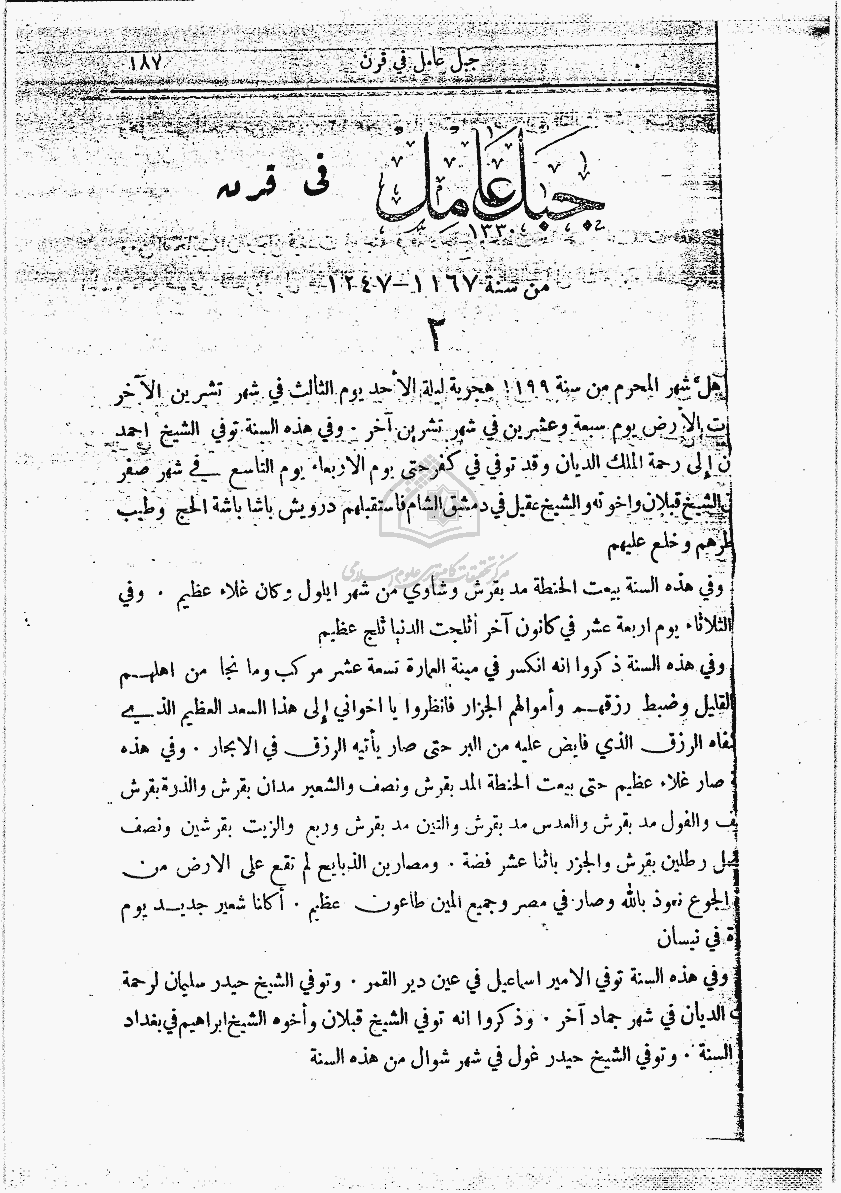 جبل عامل في قرن
١٨٧
جبل عامل في قرن
١٣٣٠
من سنة ١١٦٧–١٢٤٧
٢
أهل شهر المحرم من سنة ١١٩٩ هجرية ليلة الأحد يوم الثالث في شهر تشرين الآخر
الأرض يوم سبعة وعشرين في شهر تشرين آخر . وفي هذه السنة توفي الشيخ احمد
إلى رحمة الملك الديان وقد توفي في كفرحتى يوم الاربعاء يوم التاسع في شهر صفر
الشيخ قبلان واخوته والشيخ عقيل في دمشق الشام فاستقبلهم درويش باشا باشة الحج وطيب
وخلع عليهم
وفي هذه السنة بيعت الحنطة مد بقرش وشاوي من شهر ايلول وكان غلاء عظيم . وفي
الثلاثاء يوم اربعة عشر في كانون آخر أثلجت الدنيا ثلج عظيم
وفي هذه السنة ذكروا انه انكسر في مينة العمارة تسعة عشر مركب وما نجا من اهلهم
القليل وضبط رزقهم وأموالهم الجزار فانظروا يا اخواني إلى هذا السعد العظيم الذي
الرزق الذي فايض عليه من البر حتى صار يأتيه الرزق في الابحار . وفي هذه
صار غلاء عظيم حتى بيعت الحنطة المد بقرش ونصف والشعير مدان بقرش والذرة بقرش
والفول مد بقرش والعدس مد بقرش والتين مد بقرش وربع والزيت بقرشين ونصف
رطلين بقرش والجزر باثنا عشر فضة . ومصارين الذبايع لم تقع على الارض من
الجوع نعوذ بالله وصار في مصر وجميع المين طاعون عظيم . أكلنا شعير جديد يوم
في نيسان
وفي هذه السنة توفي الامير اسماعيل في عين دير القمر . وتوفي الشيخ حيدر سليمان لرحمة
الديان في شهر جماد آخر . وذكروا انه توفي الشيخ قبلان وأخوه الشيخ ابراهيم في بغداد
السنة . وتوفي الشيخ حيدر غول في شهر شوال من هذه السنة